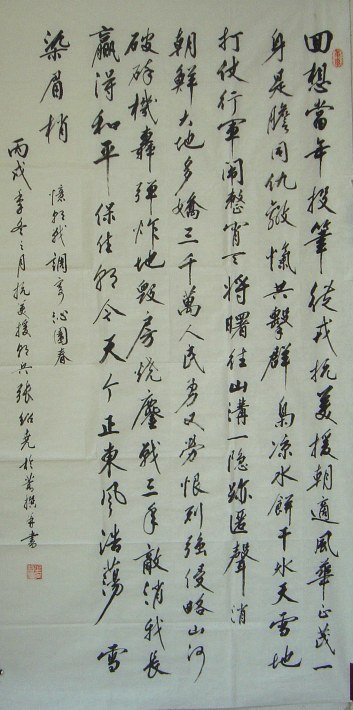 回想當年投筆從戎抗美援朝適風華正茂一
身是膽同仇敵愾共擊群梟涼水餅干冰天雪地
打仗行軍鬧整宵天將曙往山溝一隐跡匿聲消
朝鮮大地多嬌三千萬人民勇又勞恨列強侵略山河
破碎機轟彈炸地毀房燒鏖戰三年敵消我長
贏得和平保住朝今天个正東風浩蕩雪
染眉梢
憶朝戰調寄沁園春
丙戌季冬之月抗美援朝兵張紹堯於撰并書